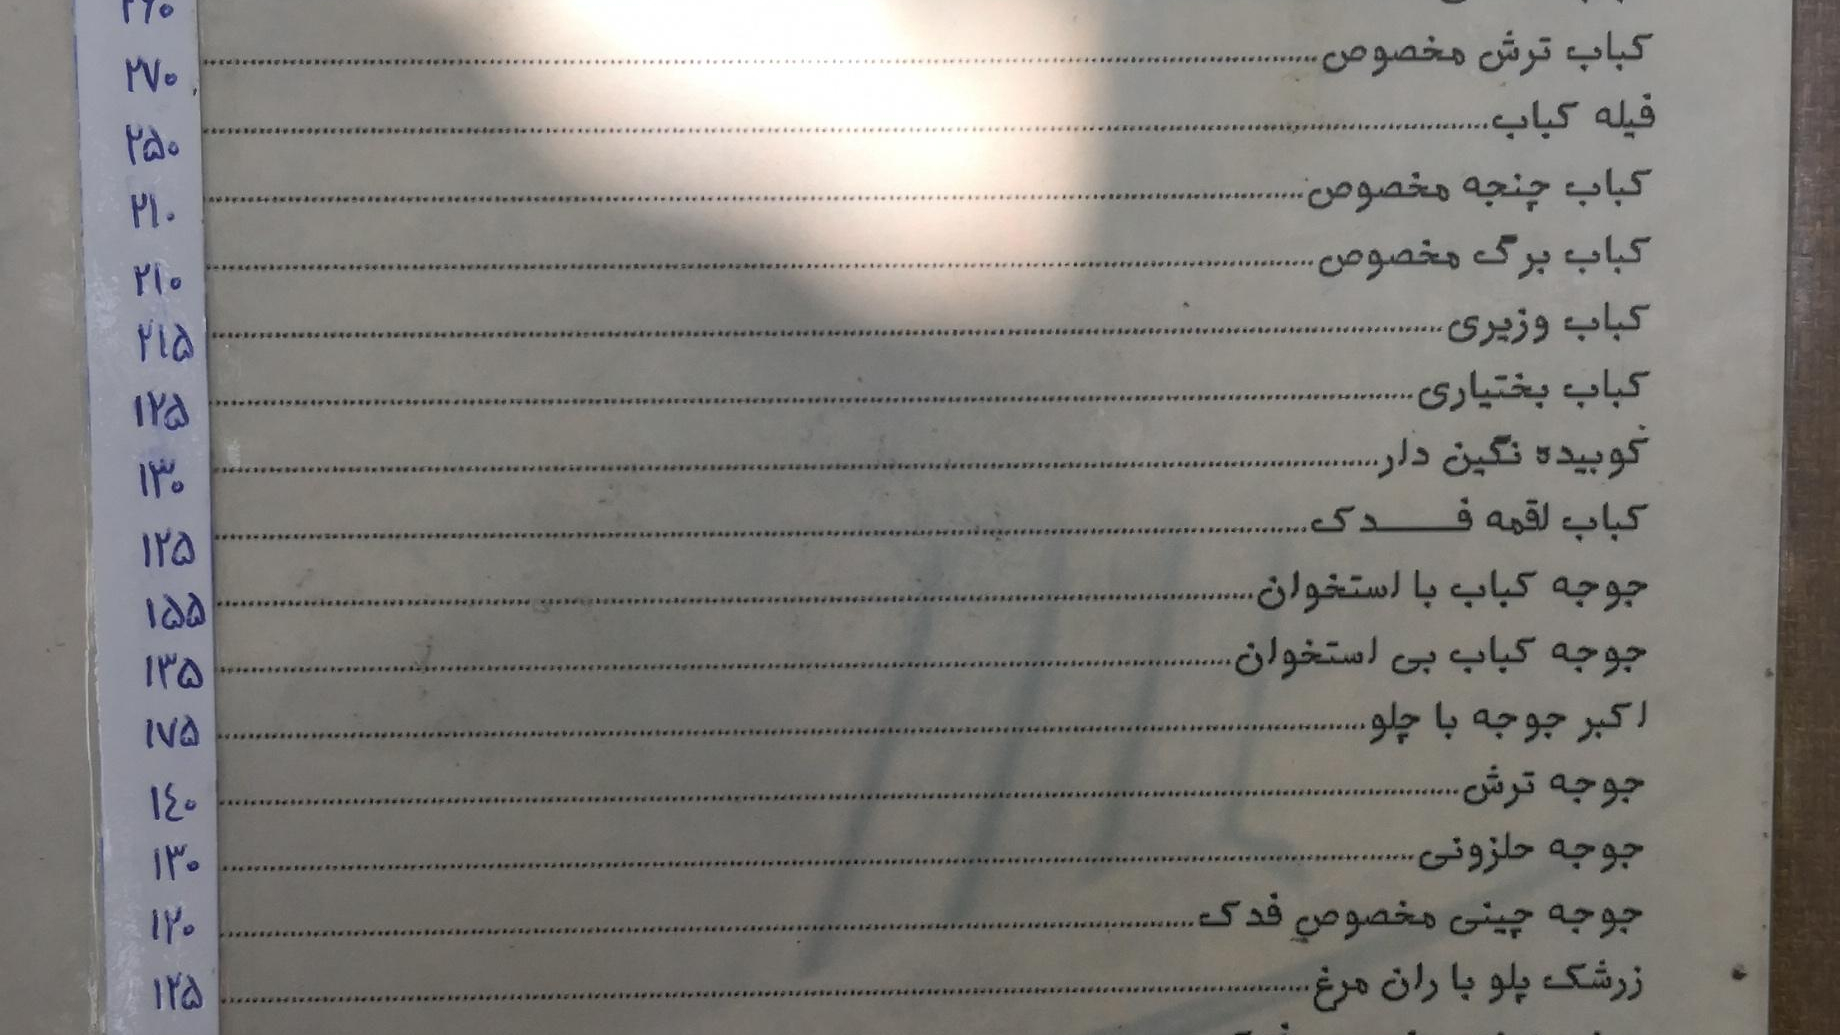 کباب ترش مخصوص ۲۷۰
فیله کباب ۲۵۰
کباب چنجه مخصوص ۲۱۰
کباب برگ مخصوص ۲۱۰
کباب وزیری ۲۱۵
کباب بختیاری ۱۲۵
کوبیده نگین دار ۱۳۰
کباب لقمه فدک ۱۲۵
جوجه کباب با استخوان ۱۵۵
جوجه کباب بی استخوان ۱۳۵
اکبر جوجه با چلو ۱۷۵
جوجه ترش ۱۴۰
جوجه حلزونی ۱۳۰
جوجه چینی مخصوص فدک ۱۲۰
زرشک پلو با ران مرغ ۱۲۵